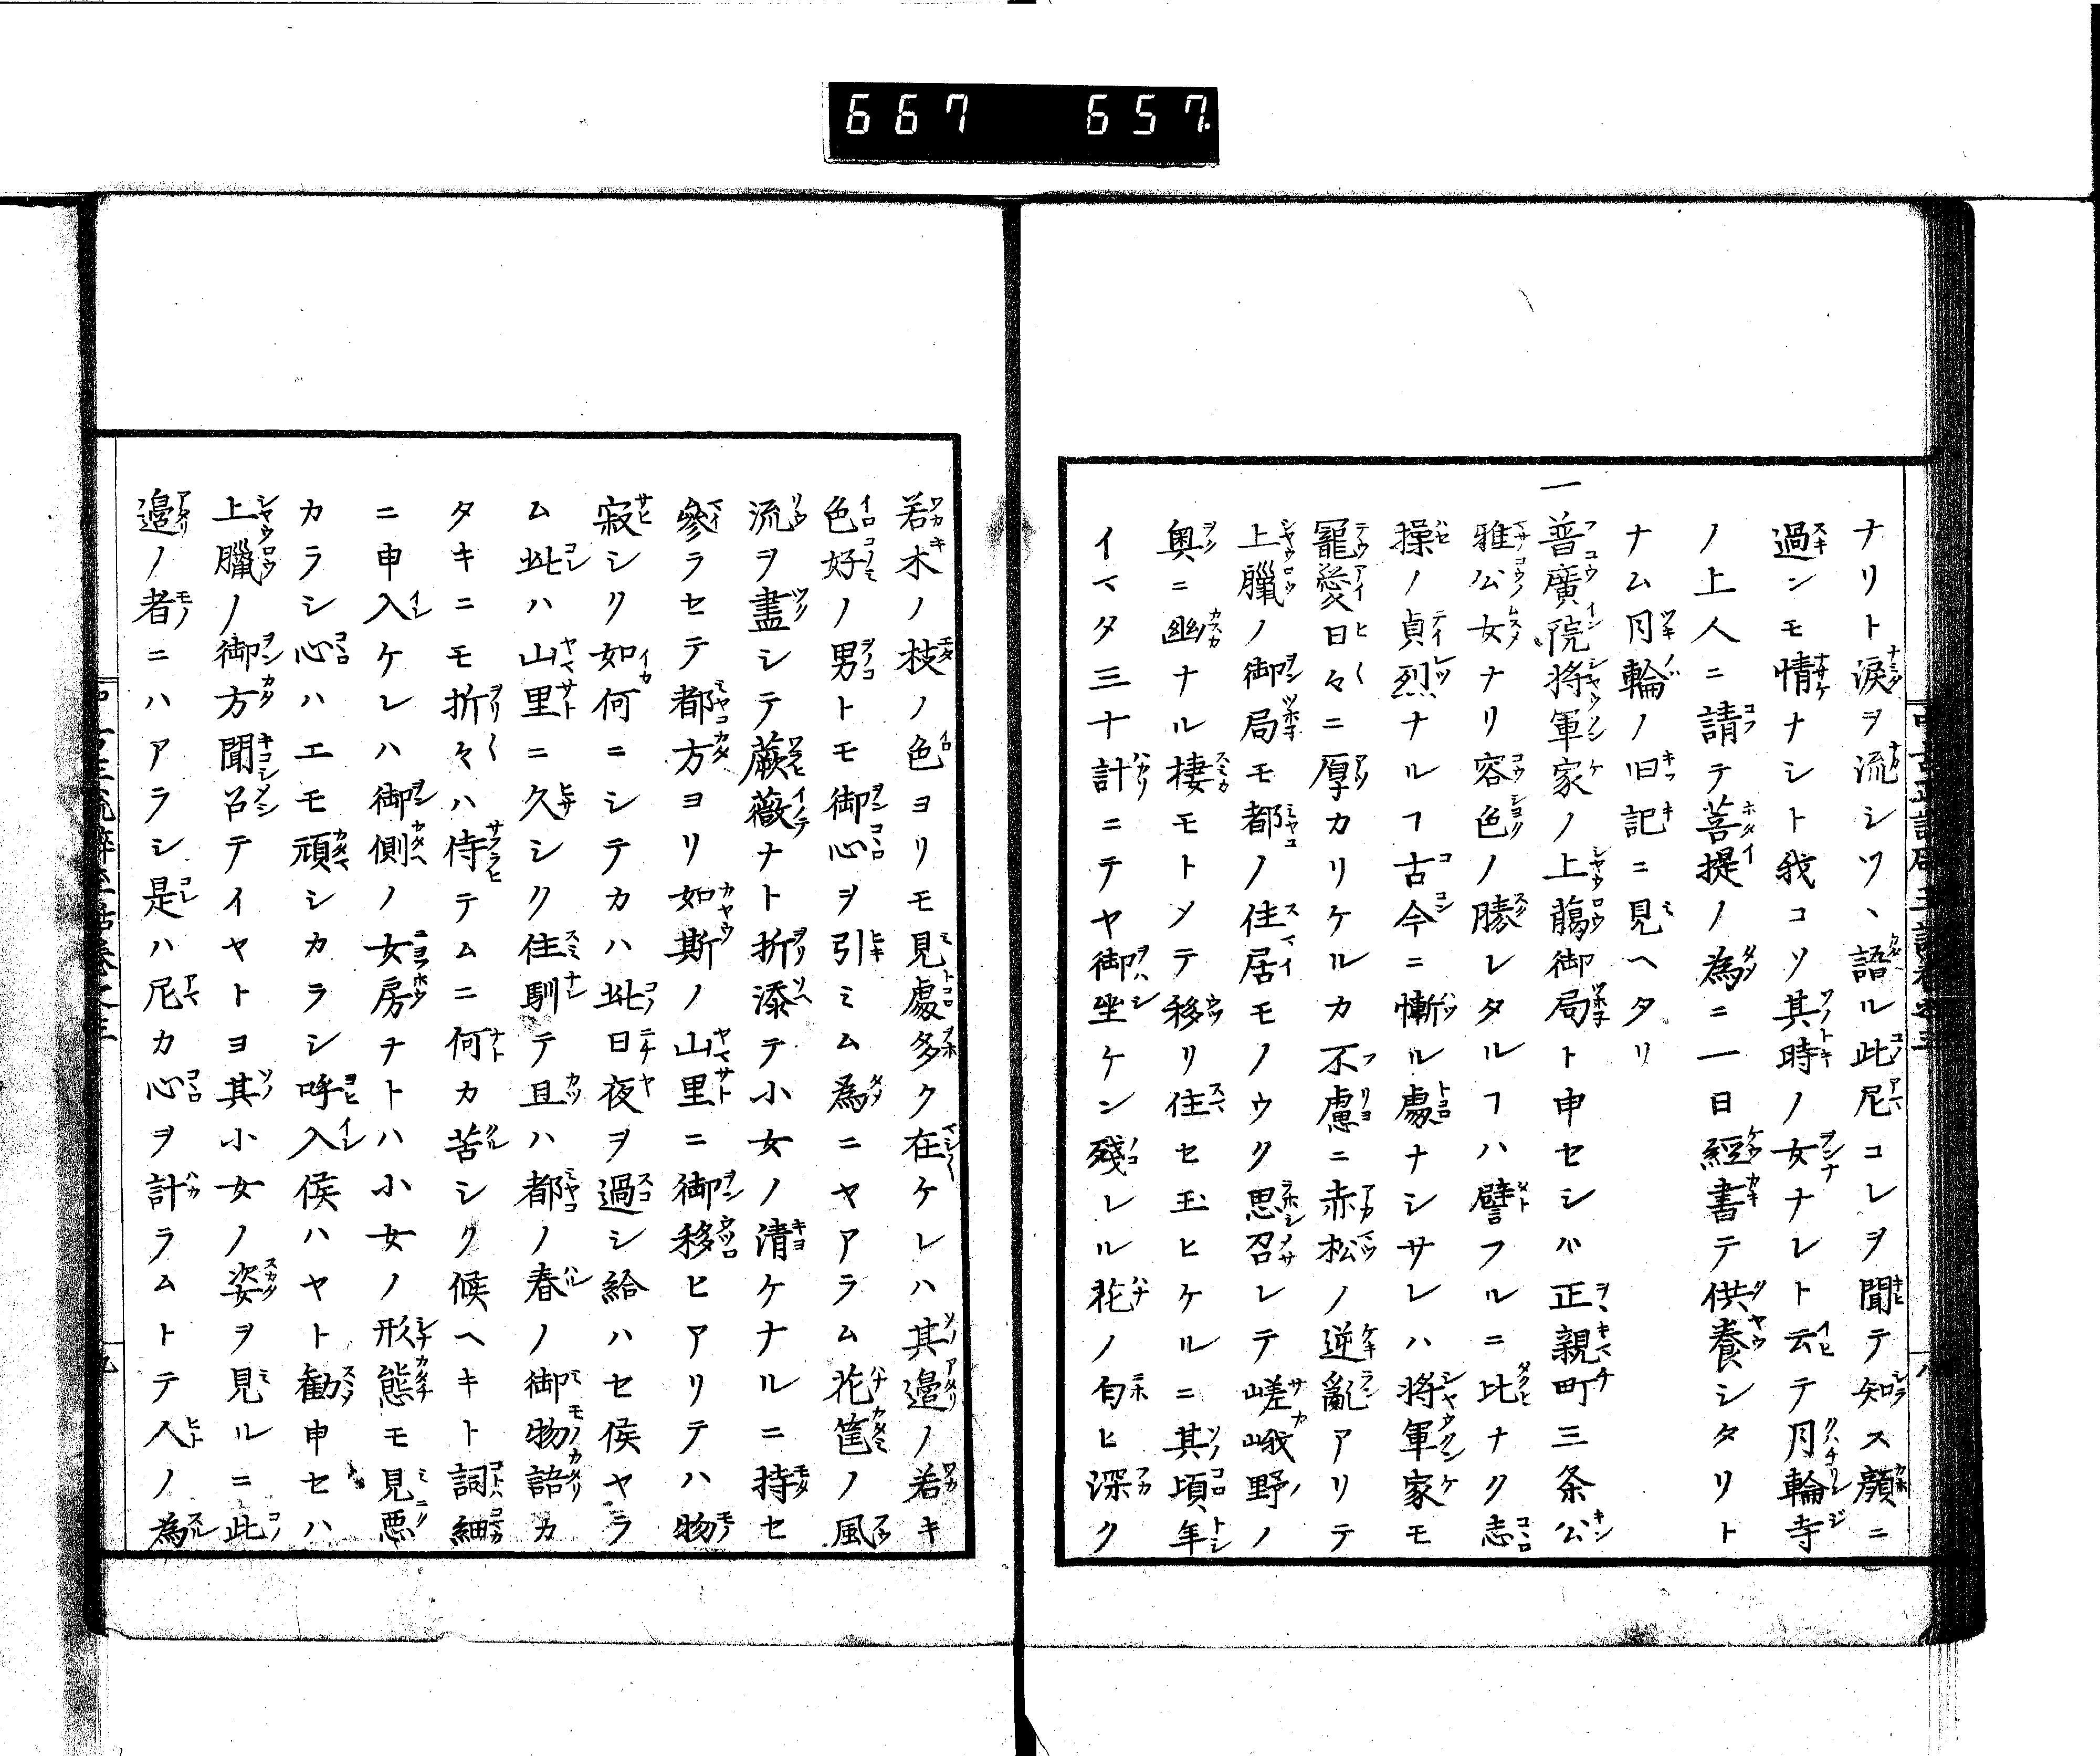 667 657.
ナリト涙ヲ流シツヽ語ル此尼コレヲ聞テ知ス顔ニ
過ンモ情ナシト我コソ其時ノ女ナレト云テ月輪寺
ノ上人ニ請テ菩提ノ為ニ一日經書テ供養シタリト
ナム月輪ノ旧記ニ見ヘタリ
一普廣院将軍家ノ上﨟御局ト申セシハ正親町三条公
雅公女ナリ容色ノ勝レタルヿハ譬フルニ比ナク志
操ノ貞烈ナルヿ古今ニ慚ル處ナシサレハ将軍家モ
寵愛日々ニ厚カリケルカ不慮ニ赤松ノ逆亂アリテ
上臈ノ御局モ都ノ住居モノウク思召レテ嵯峨野ノ
奥ニ幽ナル棲モトメテ移リ住セ玉ヒケルニ其頃年
イマタ三十計ニテヤ御坐ケン残レル花ノ匂ヒ深ク
八
若木ノ枝ノ色ヨリモ見處多ク在ケレハ其邉ノ若キ
色好ノ男トモ御心ヲ引ミム為ニヤアラム花筐ノ風
流ヲ盡シテ蕨薇ナト折添テ小女ノ清ケナルニ持セ
參ラセテ都方ヨリ如斯ノ山里ニ御移ヒアリテハ物
寂シク如何ニシテカハ此日夜ヲ過シ給ハセ侯ヤラ
ム此ハ山里ニ久シク住馴テ且ハ都ノ春ノ御物語カ
タキニモ折々ハ侍テムニ何カ苦シク候ヘキト詞細
ニ申入ケレハ御側ノ女房ナトハ小女ノ形態モ見悪
カラシ心ハエモ頑シカラシ呼入侯ハヤト勧申セハ
上臈ノ御方聞召テイヤトヨ其小女ノ姿ヲ見ルニ此
邉ノ者ニハアラシ是ハ尼カ心ヲ計ラムトテ人ノ為
九